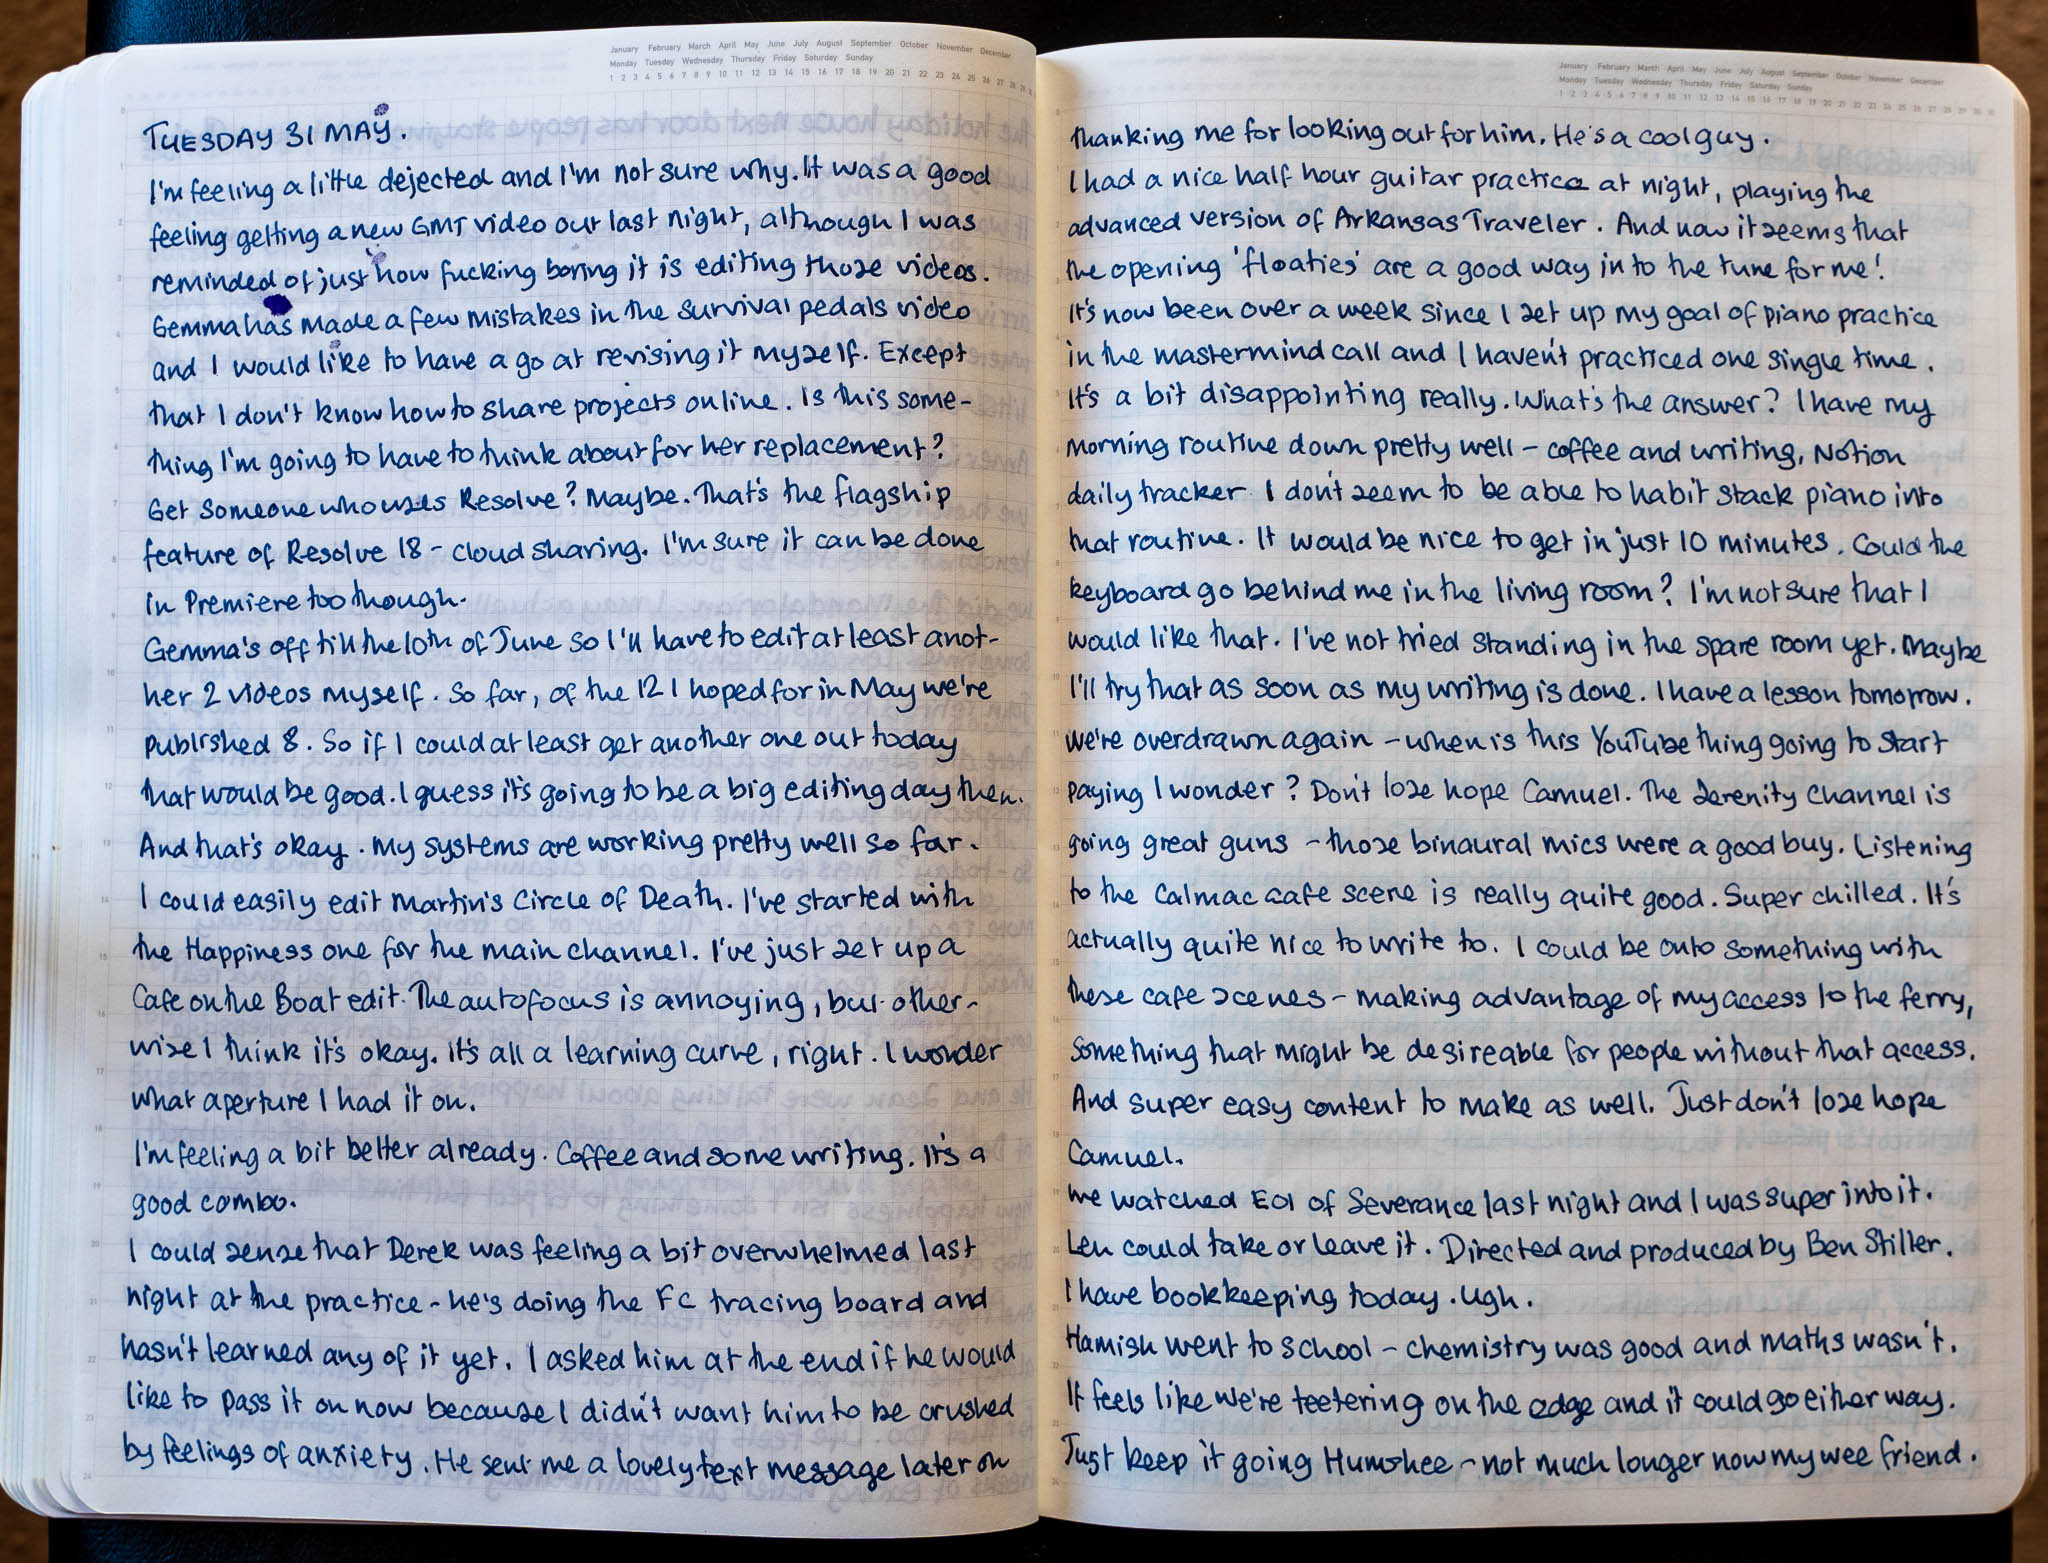 January February March April May June July August September October November December
Monday Tuesday Wednesday Thursday Friday Saturday Sunday
1 2 3 4 5 6 7 8 9 10 11 12 13 14 15 16 17 18 19 20 21 22 23 24 25 26 27 28 29
TUESDAY 31 MAY.
I'm feeling a little dejected and I'm not sure why. It was a good
feeling getting a new GMT video out last night, although I was
reminded of just how fucking boring it is editing those videos.
Gemma has made a few mistakes in the survival pedals video
and I would like to have a go at revising it myself. Except
that I don't know how to share projects online. Is this some-
thing I'm going to have to think about for her replacement?
Get someone who uses Resolve? Maybe. That's the flagship
feature of Resolve 18 - cloud sharing. I'm sure it can be done
in Premiere too though.
Gemma's off till the 10th of June so I'll have to edit at least anot-
her 2 videos myself. So far, of the 12 I hoped for in May we're
published 8. So if I could at least get another one out today
that would be good. I guess it's going to be a big editing day then.
And that's okay. My systems are working pretty well so far.
I could easily edit Martin's Circle of Death. I've started with
the Happiness one for the main channel. I've just set up a
Cafe on the Boat edit. The autofocus is annoying, but other-
wise I think it's okay. It's all a learning curve, right. I wonder
what aperture I had it on.
I'm feeling a bit better already. Coffee and some writing. It's a
good combo.
I could sense that Derek was feeling a bit overwhelmed last
night at the practice - he's doing the FC tracing board and
hasn't learned any of it yet. I asked him at the end if he would
like to pass it on now because I didn't want him to be crushed
by feelings of anxiety. He sent me a lovely text message later on
January February March April May June July August September October November December
Monday Tuesday Wednesday Thursday Friday Saturday Sunday
1 2 3 4 5 6 7 8 9 10 11 12 13 14 15 16 17 18 19 20 21 22 23 24 25 26 27 28 29 30 31
thanking me for looking out for him. He's a cool guy.
I had a nice half hour guitar practice at night, playing the
advanced version of Arkansas Traveler. And now it seems that
the opening 'floaties' are a good way in to the tune for me!
It's now been over a week since I set up my goal of piano practice
in the mastermind call and I haven't practiced one single time.
It's a bit disappointing really. What's the answer? I have my
morning routine down pretty well - coffee and writing, Notion
daily tracker. I don't seem to be able to habit stack piano into
that routine. It would be nice to get in just 10 minutes. Could the
keyboard go behind me in the living room? I'm not sure that I
would like that. I've not tried standing in the spare room yet. Maybe
I'll try that as soon as my writing is done. I have a lesson tomorrow.
We're overdrawn again - when is this YouTube thing going to start
paying I wonder? Don't lose hope Camuel. The Serenity Channel is
going great guns - those binaural mics were a good buy. Listening
to the Calmac cafe scene is really quite good. Super chilled. It's
actually quite nice to write to. I could be onto something with
these cafe scenes - making advantage of my access to the ferry,
something that might be desireable for people without that access.
And super easy content to make as well. Just don't lose hope
Camuel.
We watched E01 of Severance last night and I was super into it.
Len could take or leave it. Directed and produced by Ben Stiller.
I have bookkeeping today. Ugh.
Hamish went to school - chemistry was good and maths wasn't.
It feels like we're teetering on the edge and it could go either way.
Just keep it going Humshee - not much longer now my wee friend.